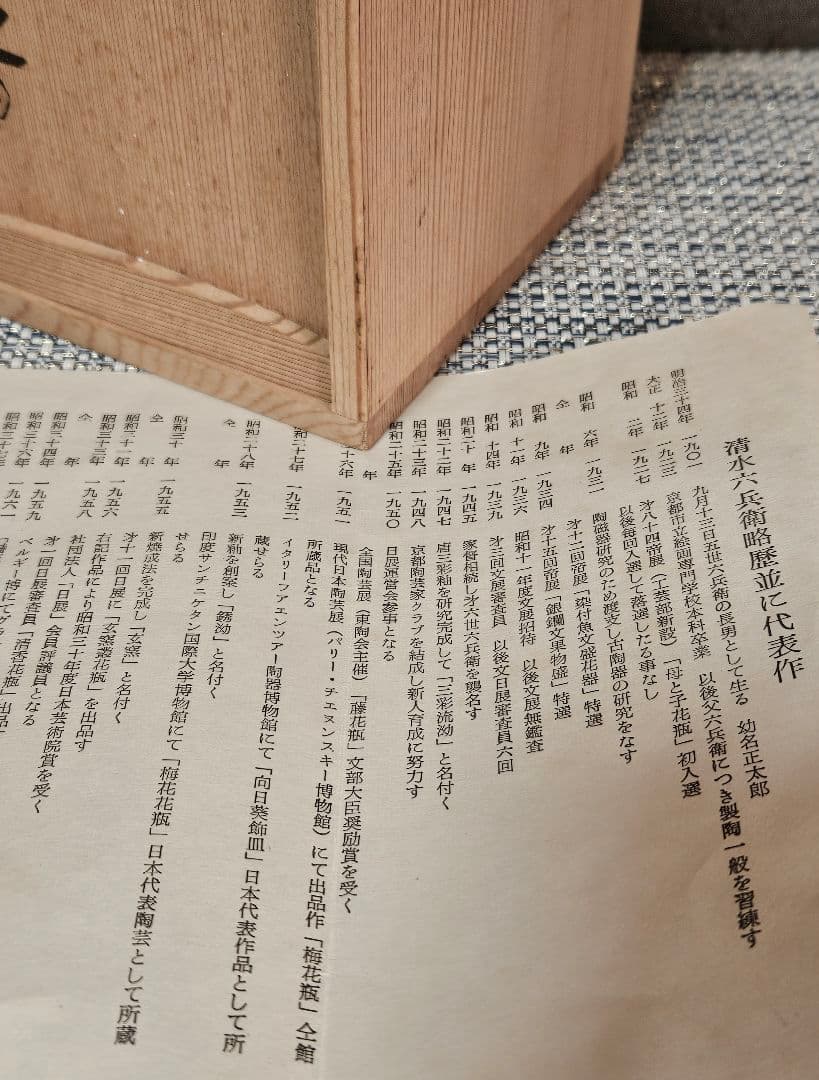 清水六兵衛略歴並に代表作
明治三十四年 一九〇一 九月十三日五世六兵衛の長男として生る 幼名正太郎
大正 十二年 一九二三 京都市立絵画専門学校本科卒業 以後父六兵衛につき製陶一般を習練す
昭和 二年 一九二七 才八十四帝展（工芸部新設）「母と子花瓶」初入選
以後毎回入選して落選したる事なし
昭和 六年 一九三一 陶磁器研究のため渡支し古陶器の研究をなす
仝 年 才十二回帝展「染付魚文盛花器」特選
昭和 九年 一九三四 才十五回帝展「銀鑭文果物盛」特選
昭和 十一年 一九三六 昭和十一年度文展招待 以後文展無鑑査
昭和 十四年 一九三九 才三回文展審査員 以後文日展審査員六回
昭和二十 年 一九四五 家督相続し才六世六兵衛を襲名す
昭和二十二年 一九四七 唐三彩釉を研究完成して「三彩流泑」と名付く
昭和二十三年 一九四八 京都陶芸家クラブを結成し新人育成に努力す
昭和二十五年 一九五〇 日展運営会参事となる
年 全国陶芸展（東陶会主催）「藤花瓶」文部大臣奨励賞を受く
十六年 一九五一 現代日本陶芸展（パリー・チエヌンスキー博物館）にて出品作「梅花瓶」仝館
所蔵品となる
二十七年 一九五二 イタリーフアエンツアー陶器博物館にて「向日葵飾皿」日本代表作品として所
蔵せらる
昭和二十八年 一九五三 新釉を創案し「銹泑」と名付く
仝 年 印度サンチニケタン国際大学博物館にて「梅花花瓶」日本代表陶芸として所蔵
せらる
昭和三十 年 一九五五 新焼成法を完成し「玄窯」と名付く
仝 年 才十一回日展に「玄窯叢花瓶」を出品す
昭和三十一年 一九五六 右記作品により昭和三十年度日本芸術院賞を受く
昭和三十三年 一九五八 社団法人「日展」会員評議員となる
仝 年 才一回日展審査員「清香花瓶」出品
昭和三十四年 一九五九 ベルギー博にてグラ
昭和三十六年
昭和三十七年 一九六一